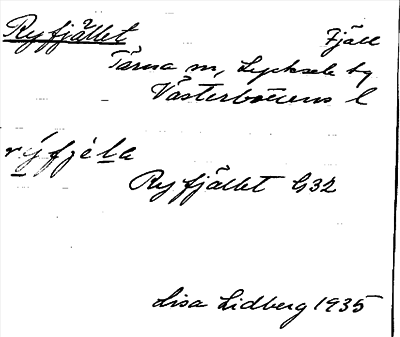 Ryfjället Fjäll
Tärna sn, Lycksele tg
Västerbottens l
rýfjela
Ryfjället G32
Lisa Lidberg 1935